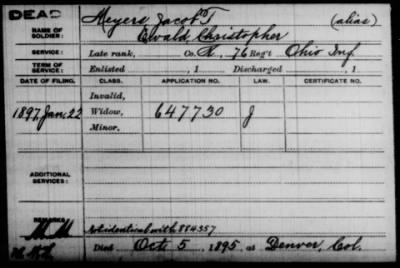 DEAD
NAME OF SOLDIER:
Meyers Jacob T (alias)
Ewald, Christopher
SERVICE:
Late rank, Co. K, 76 Reg't Ohio Inf
TERM OF SERVICE:
Enlisted , 1 Discharged , 1
DATE OF FILING. CLASS. APPLICATION NO. LAW. CERTIFICATE NO.
Invalid,
1897, Jan. 22 Widow, 647730 J
Minor,
ADDITIONAL SERVICES:
REMARKS:
Not identical with 884357
Died Oct 5, 1895, at Denver, Col.